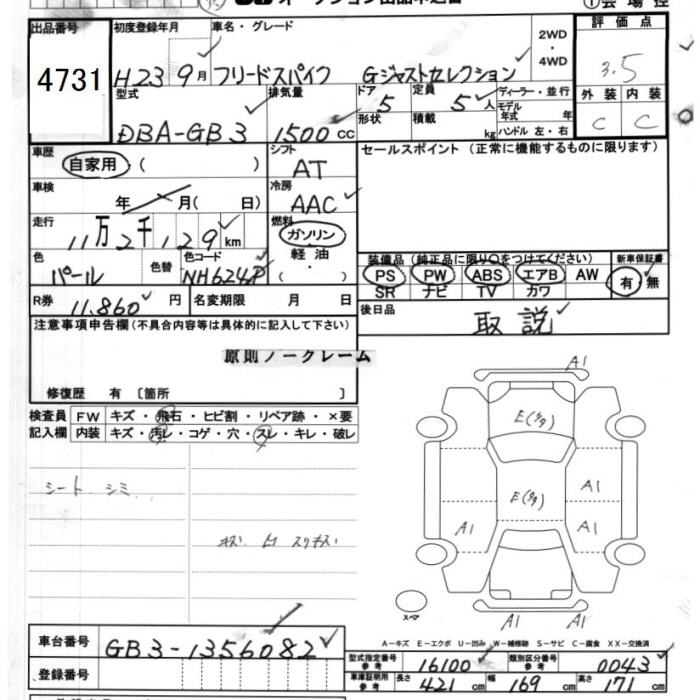 オークション出品申込書 ①会場控
出品番号 初度登録年月 車名・グレード 2WD・4WD 評価点
4731 H23 9月 フリードスパイク Gジャストセレクション 3.5
型式 排気量 ドア 定員 ディーラー・並行 外装 内装
5 5人 モデル年式 年
DBA-GB3 1500cc 形状 積載 kg ハンドル 左・右 C C
車歴 シフト セールスポイント (正常に機能するものに限ります)
自家用 ( ) AT
車検 冷房
年 月( 日) AAC
走行 燃料
11万2千129km ガソリン
色 色替 色コード 軽油 装備品 (純正品に限り○をつけてください) 新車保証書
パール NH624P ・ ( ) PS PW ABS エアB AW 有・無
SR ナビ TV カワ
R券 11.860円 名変期限 月 日 後日品
取説
注意事項申告欄(不具合内容等は具体的に記入して下さい)
原則ノークレーム
修復歴 有 〔箇所 〕
検査員 FW キズ・飛石・ヒビ割・リペア跡・×要
記入欄 内装 キズ・汚レ・コゲ・穴・スレ・キレ・破レ
シート シミ
A1
E(
E(
A1
A1 A1
スペア
A1 A1
A-キズ E-エクボ U-凹み W-補修跡 S-サビ C-腐食 XX-交換済
車台番号 GB3-1356082
型式指定番号 参考 16100 類別区分番号 参考 0043
登録番号
車庫証明用 参考 長さ 421cm 幅 169cm 高さ 171cm